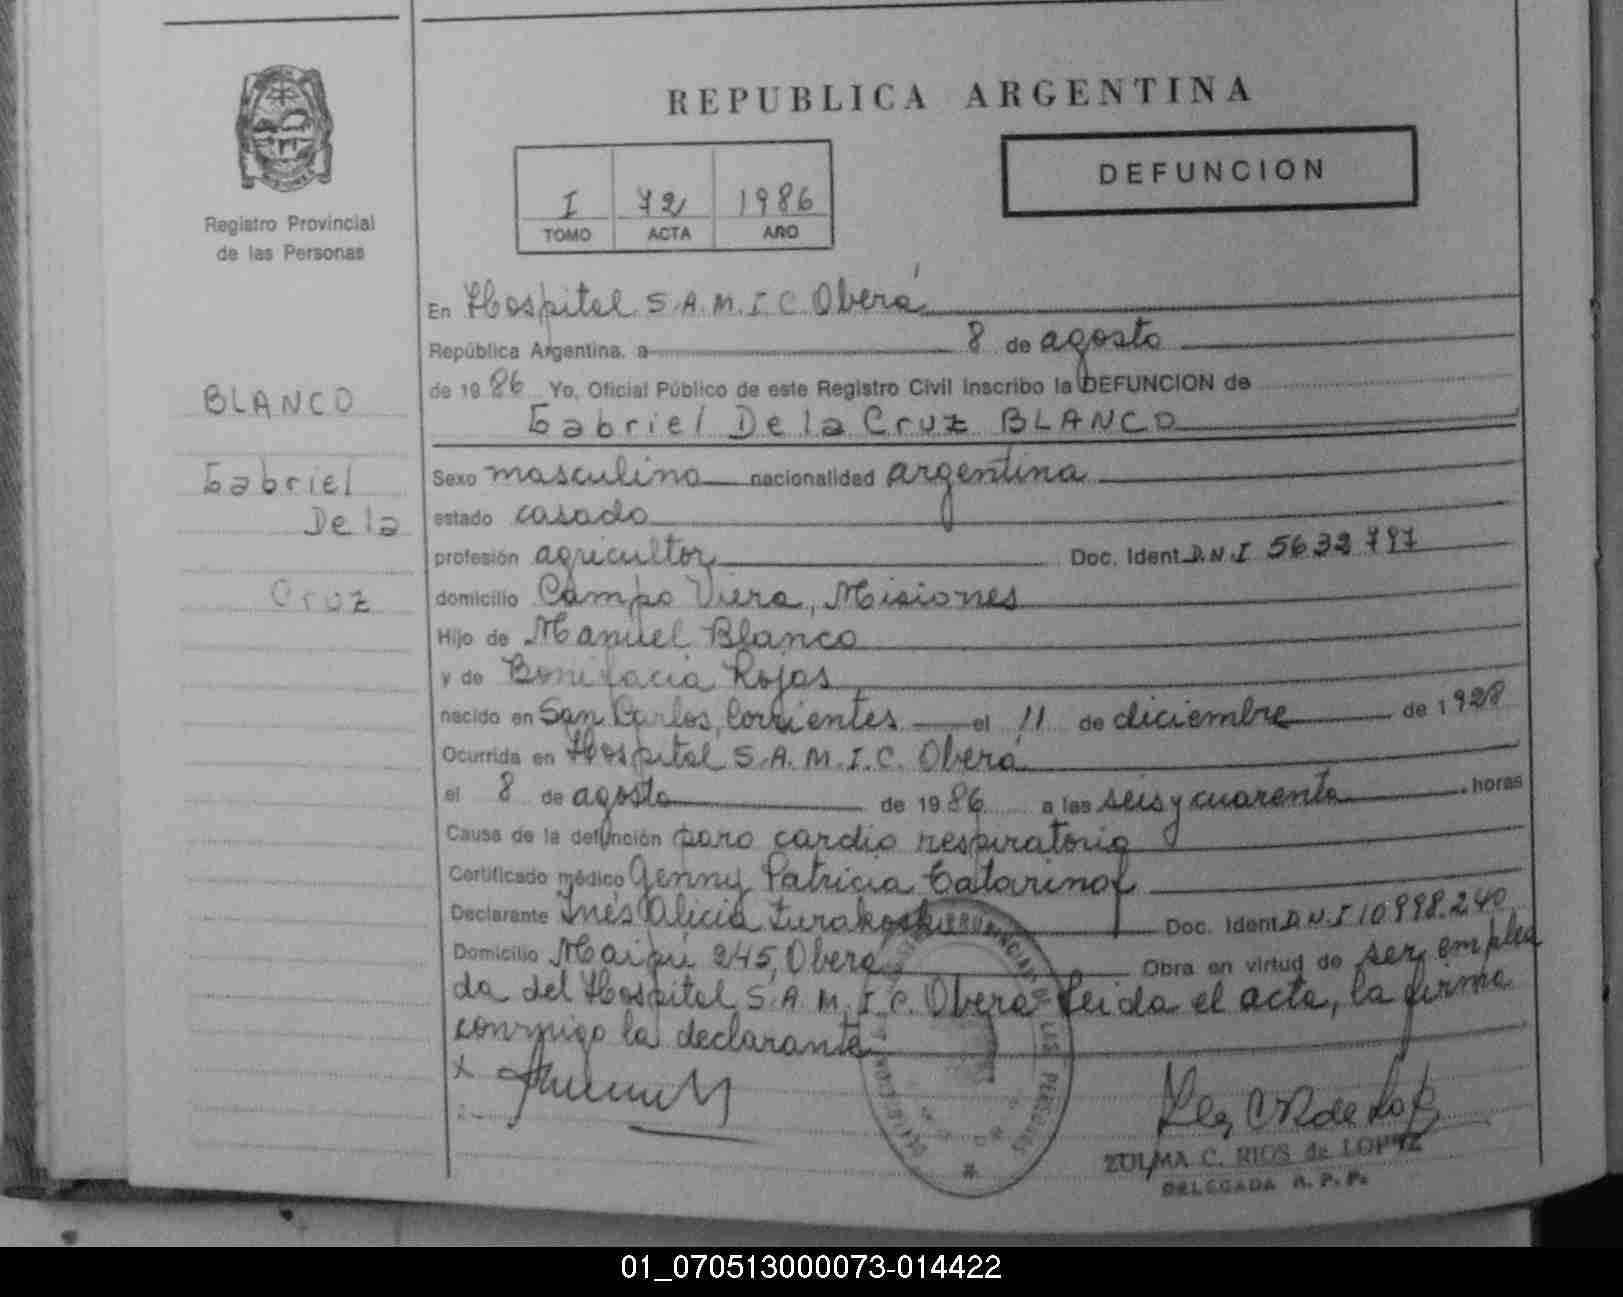 REPUBLICA ARGENTINA
DEFUNCION
I 72 1986
TOMO ACTA AÑO
Registro Provincial
de las Personas
BLANCO
Gabriel
De la
Cruz
En Hospital S.A.M.I.C. Oberá
República Argentina, a 8 de agosto
de 1986 Yo, Oficial Público de este Registro Civil inscribo la DEFUNCION de
Gabriel De la Cruz BLANCO
Sexo masculino nacionalidad argentina
estado casado
profesión agricultor Doc. Ident. D.N.I 5632797
domicilio Campo Viera, Misiones
Hijo de Manuel Blanco
y de Bonifacia Rojas
nacido en San Carlos, Corrientes el 11 de diciembre de 1928
Ocurrida en Hospital S.A.M.I.C. Oberá
el 8 de agosto de 1986 a las seis y cuarenta horas
Causa de la defunción paro cardio respiratorio
Certificado médico Genny Patricia
Declarante Inés Alicia Doc. Ident. D.N.I 10.998.240
Domicilio Maipú 245, Oberá Obra en virtud de ser emplea
da del Hospital S.A.M.I.C. Oberá Leida el acta, la firma
conmigo la declarante
x
ZULMA C. RIOS de LOPEZ
DELEGADA R. P. P.
01_070513000073-014422